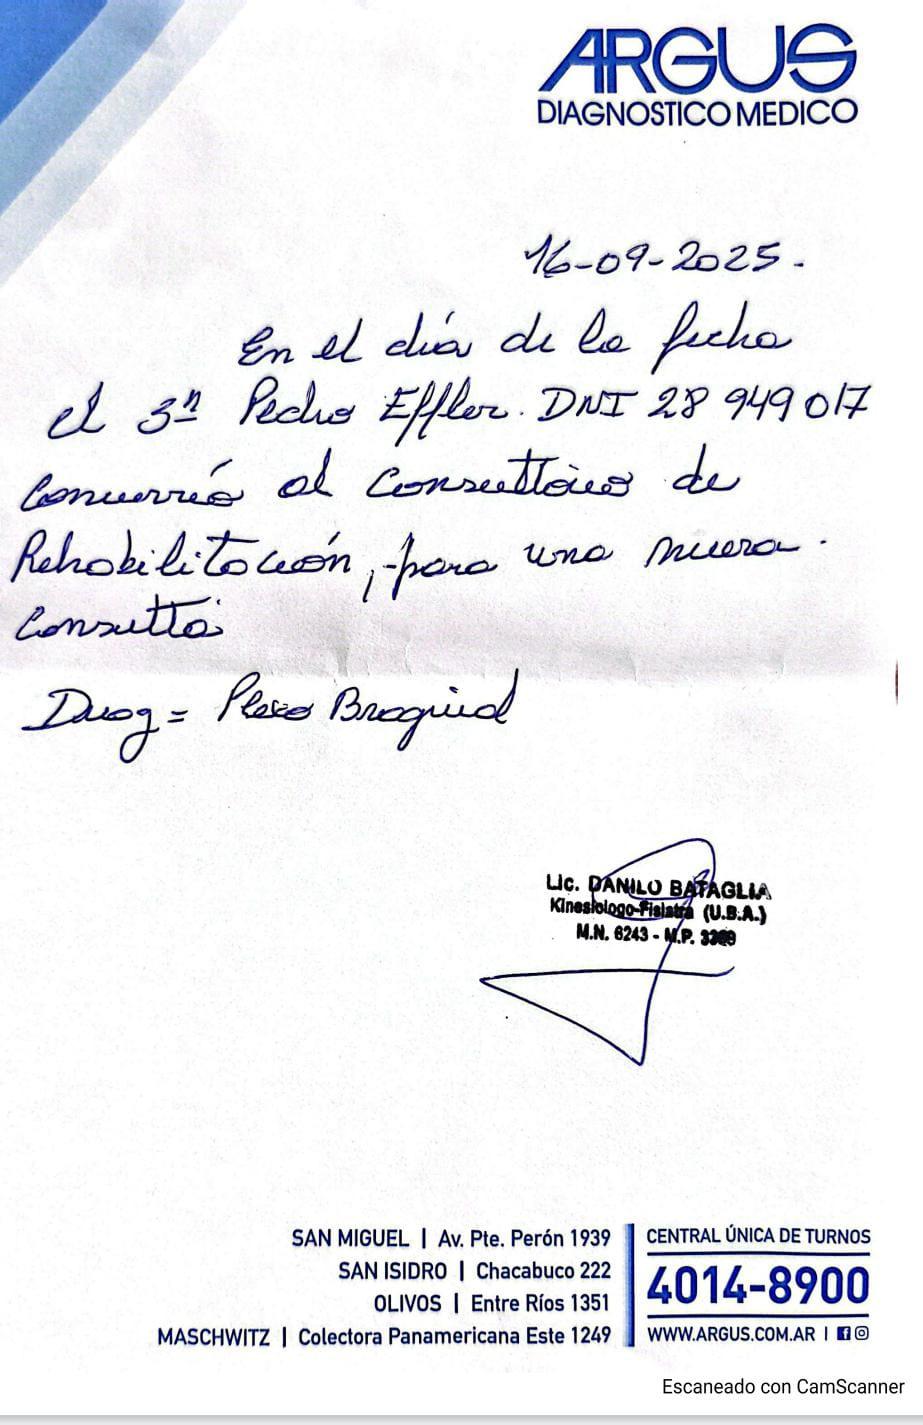 ARGUS
DIAGNOSTICO MEDICO
16-09-2025.
En el día de la fecha
el Sr Pedro Effler. DNI 28 949 017
Concurrió al Consultorio de
Rehabilitación, para una nueva
Consulta
Diag = Plexo Braquial
Lic. DANILO BATAGLIA
Kinesiologo-Fisiatra (U.B.A.)
M.N. 6243 - M.P.
SAN MIGUEL | Av. Pte. Perón 1939
SAN ISIDRO | Chacabuco 222
OLIVOS | Entre Ríos 1351
MASCHWITZ | Colectora Panamericana Este 1249
CENTRAL ÚNICA DE TURNOS
4014-8900
WWW.ARGUS.COM.AR |
Escaneado con CamScanner